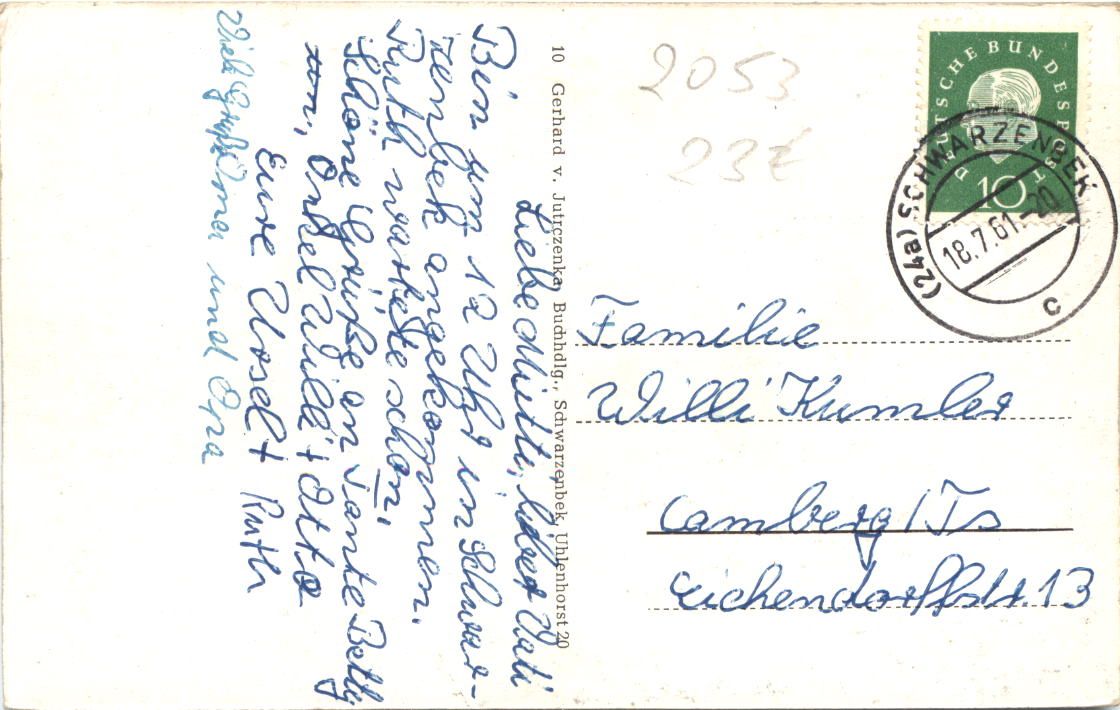 Liebe Mutti, lieber Vati
Bin um 12 Uhr in Schwar-
zenbek angekommen.
Ruth wartete schon,
Schöne Grüße an Tante Betty
Onkel Willi + Otto
Eure Ursel + Ruth
Viele Grüße Oma und Opa
10 Gerhard v. Jutrczenka, Buchhdlg., Schwarzenbek, Uhlenhorst 20
2053
23
DEUTSCHE BUNDESPOST
10
(24a) SCHWARZENBEK
18.7.61.-20
c
Familie
Willi Kumler
Camberg/Ts
Eichendorffstr. 13